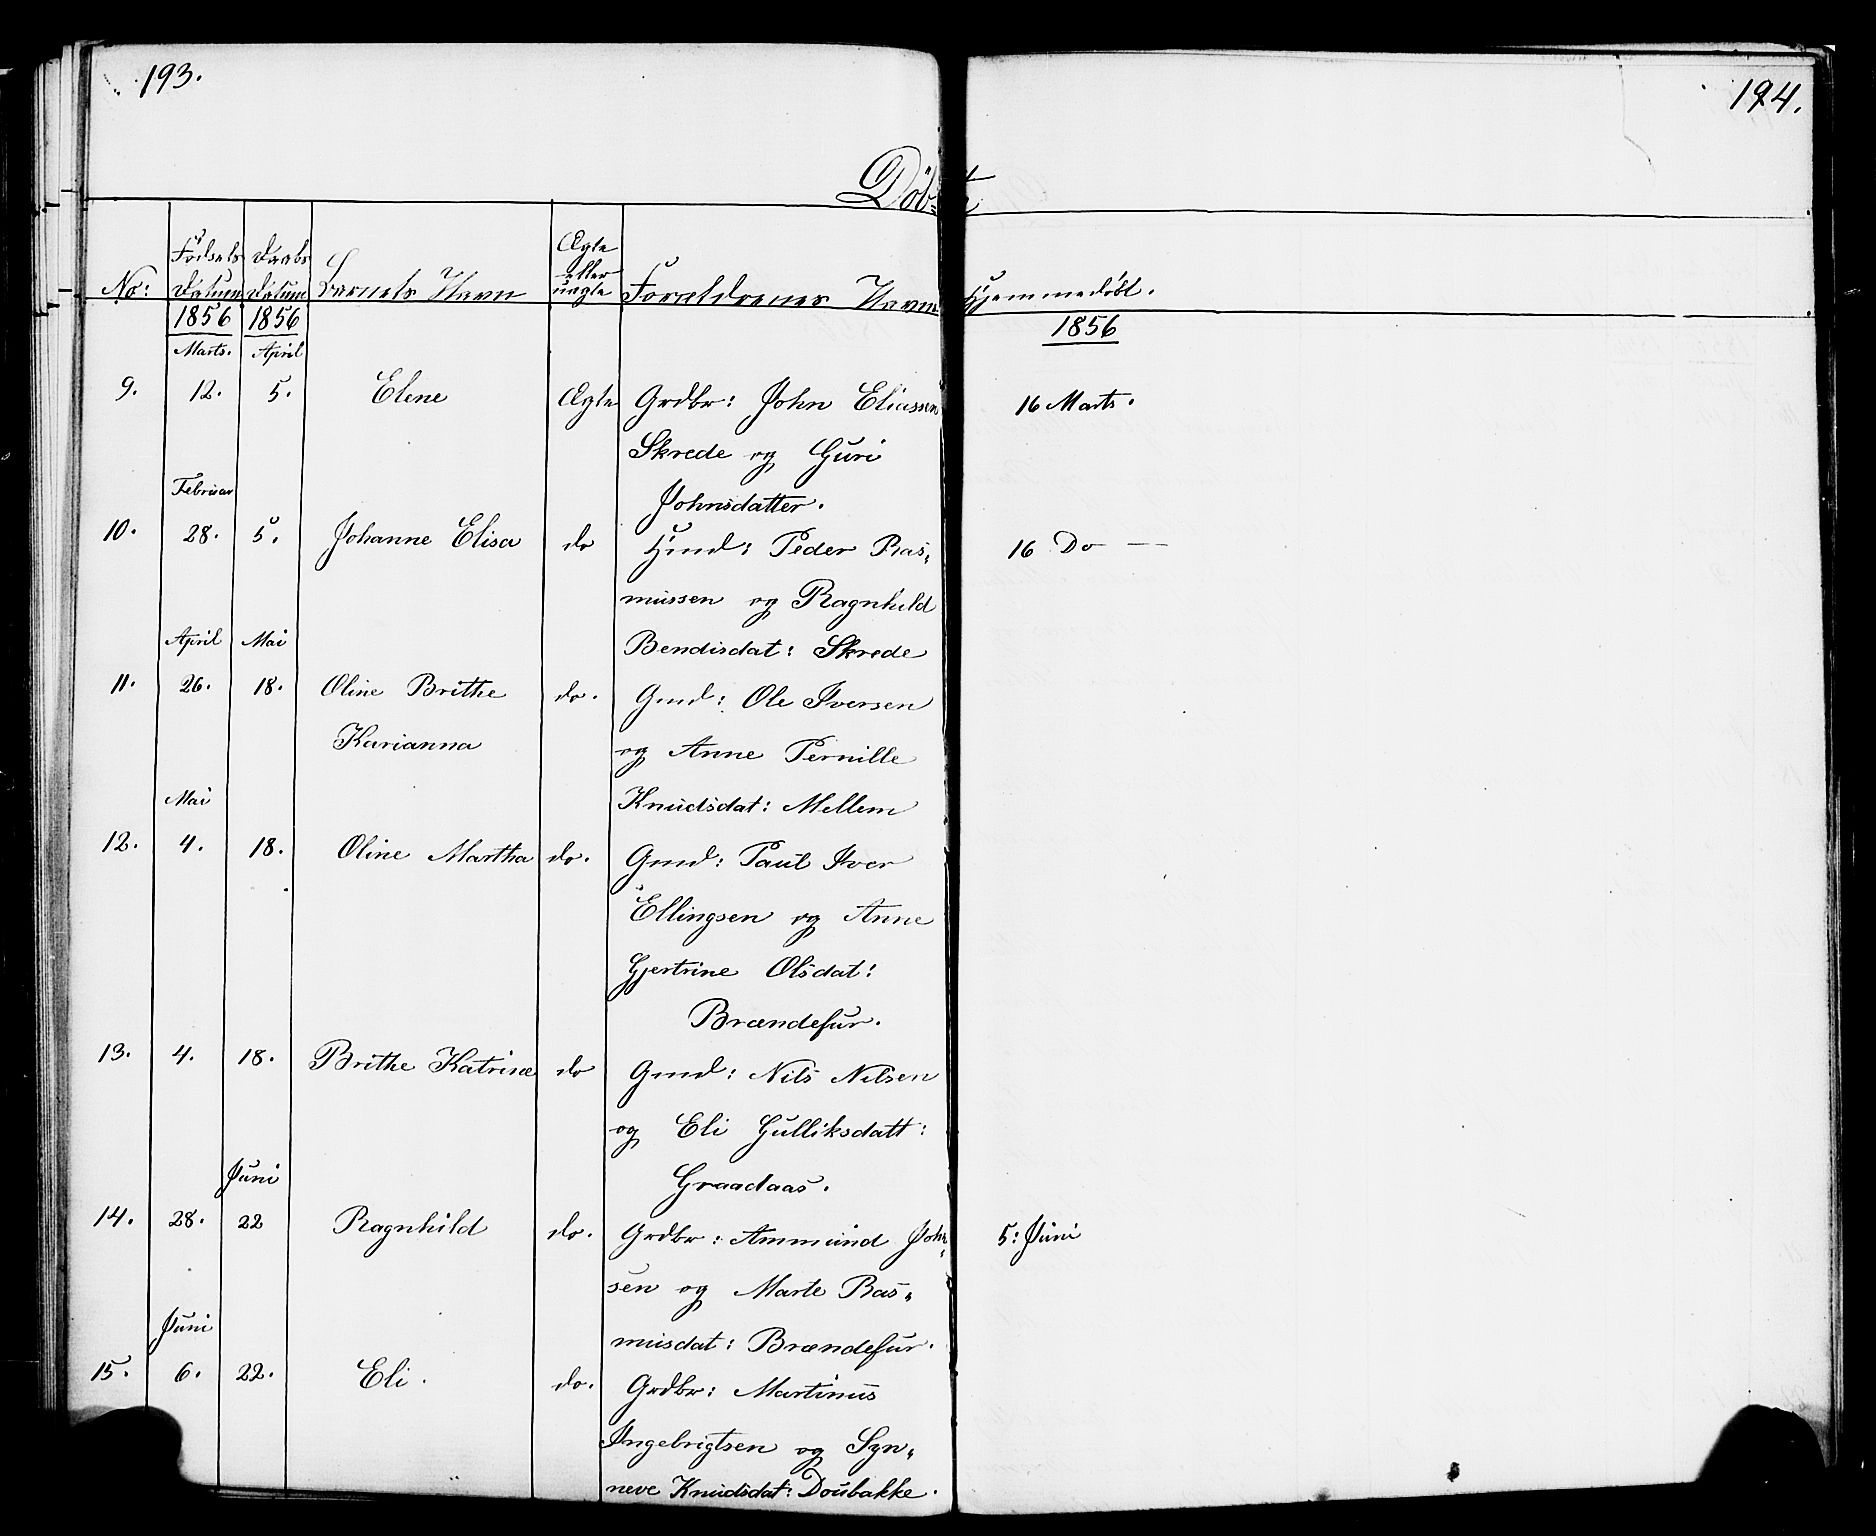 193.
194.
Döbte
No:
Födsels Datum
Daabs Datum
Barnets Navn
Ægte eller uægte
Forældrenes Navn
Hjemmedöbt.
1856 1856 1856
Marts. April
9. 12. 5. Elene Ægte Grdbr: John Eliassen 16 Marts.
Skrede og Guri
Februar Johnsdatter.
10. 28. 5. Johanne Elisa do Hmd: Peder Ras„ 16 Do —
mussen og Ragnhild
April Mai Bendisdat: Skrede
11. 26. 18. Oline Brithe do. Gmd: Ole Iversen
Karianna og Anne Pernille
Mai Knudsdat: Mellem
12. 4. 18. Oline Martha do. Gmd: Paul Iver
Ellingsen og Anne
Gjertrine Olsdat:
Brændefur.
13. 4. 18. Brithe Katrine do Gmd: Nils Nilsen
og Eli Gulliksdatt:
Juni Graadaas.
14. 28. 22 Ragnhild do. Grdbr: Ammund John„ 5: Juni
sen og Marte Ras„
Juni musdat: Brændefur.
15. 6. 22. Eli. do. Grdbr: Martinus
Ingebrigtsen og Syn„
neve Knudsdat: Dousbakke.